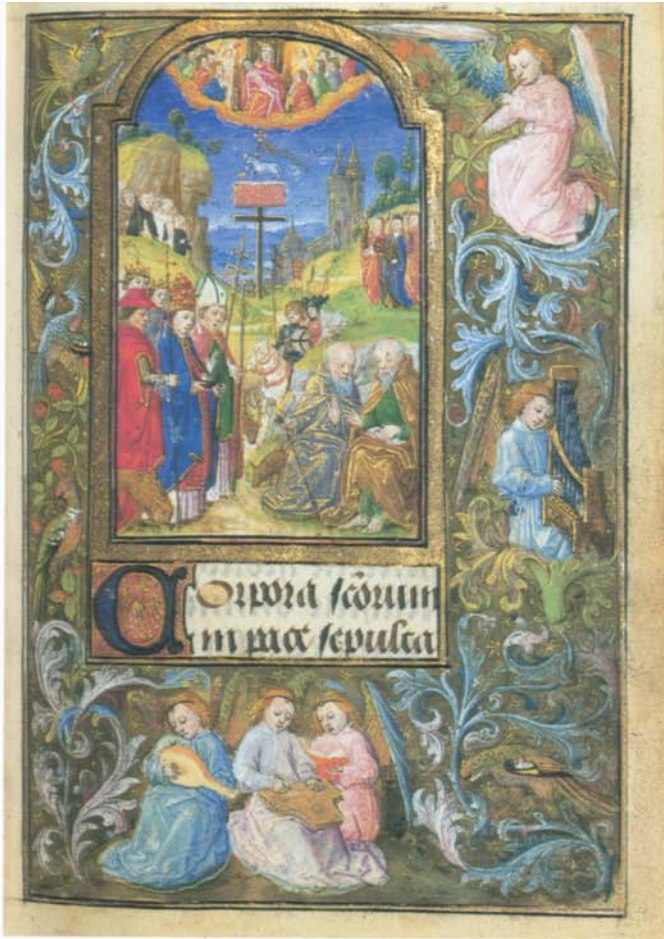 Corpora scõrum
in pace sepulta